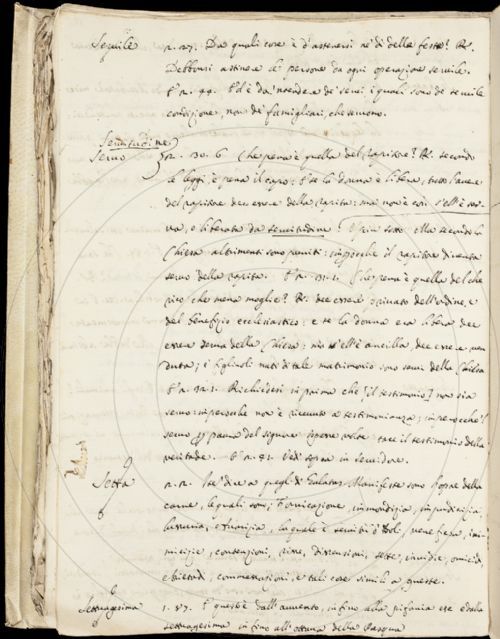 Servile n. 27. Da quali cose è d'astenersi ne' dì delle feste? R.
Debbonsi astinere le persone da ogni operazione servile.
E n. 99. Ed è da 'ntendere de' servi i quali sono di servile
condizione, non de' famigliari, che servono.
Servitudine
Servo n. 30. 6. Che pena è quella del rapitore? R. secondo
le leggi, è pena il capo: e se la donna è libera, tutto l'avere
del rapitore dee essere della rapita: ma non è così s'ell'è ser-
va, o liberata da servitudine? E più sotto. Ma secondo la
Chiesa altrimenti sono puniti: imperocchè il rapitore diventa
servo della rapita. E n. 31. Che pena è quella del che
rico che mena moglie? R. dee essere privato dell'ordine, e
del benefizio ecclesiastico: e se la donna era libera dee
essere serva della Chiesa: ma s'ell'è ancilla, dee essere ven
duta; i figliuoli nati di tale matrimonio sono servi della Chiesa
E n. Richiedesi in prima che [il testimonio] non sia
servo: imperocchè non è ricevuto a testimonianza; imperocchè 'l
servo per paura del signore tace il testimonio della
veritade. E n. 81. Vedi sopra in servidore.
Setta n. 2. dice a quegli di Galatas. Manifeste sono l'opre della
carne, le quali sono; Fornicazione, immondizia, impudicizia,
lussuria, avarizia, la quale è servitù d'Idoli, veneficia, ini-
micizie, contenzioni, risse, dissensioni, sette, invidie, omicidi,
ebrietadi, commessazioni, e tali cose simili a queste.
Settuagesima 1. 87. E quest'è dall'avvento, infino alla pifania, ed è dalla
settuagesima in fino all'ottava della Pasqua